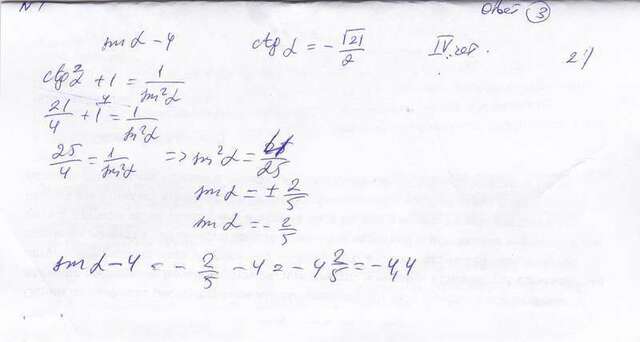 N 1 Ответ ③
sin α - 4 ctg α = -√21/2 IV чет. 2)
ctg²α + 1 = 1/sin²α
21/4 + 1 = 1/sin²α
25/4 = 1/sin²α => sin²α = 4/25
sin α = ± 2/5
sin α = - 2/5
sin α - 4 = - 2/5 - 4 = - 4 2/5 = -4,4